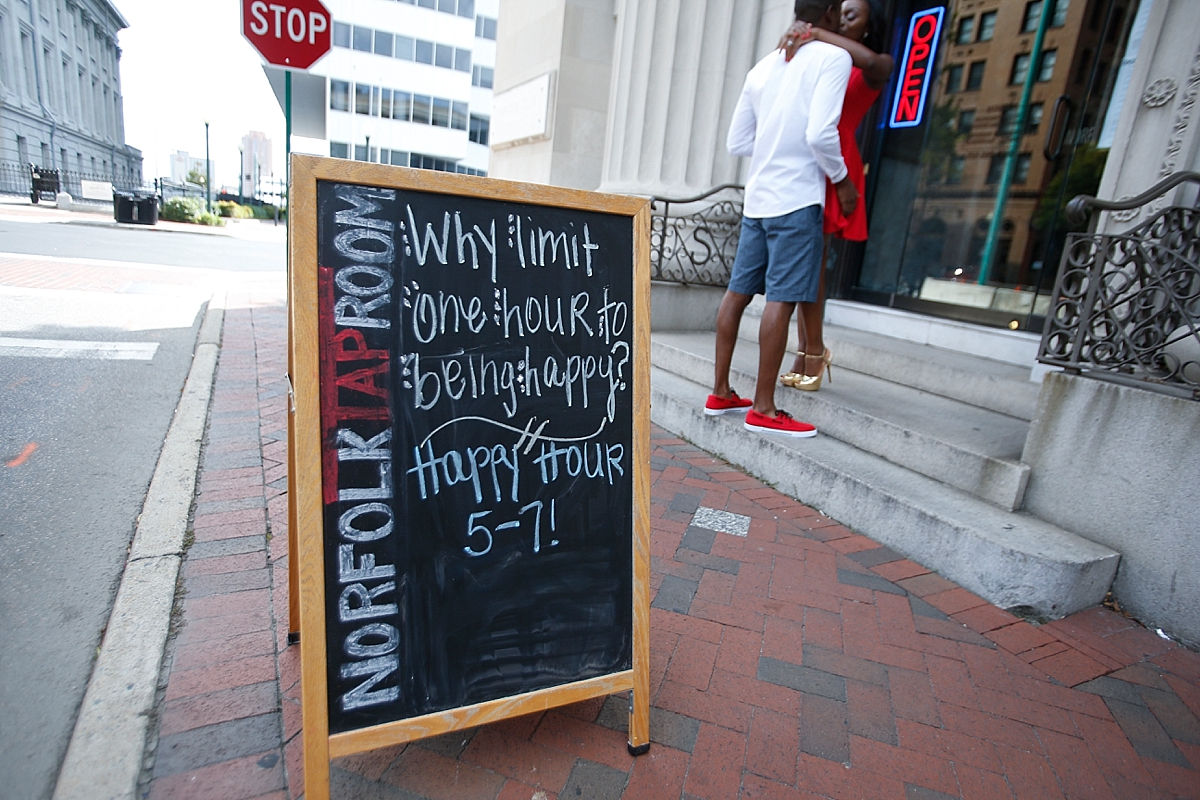 STOP
OPEN
NORFOLK TAP ROOM
Why limit
one hour to
being happy?
Happy Hour
5-7!